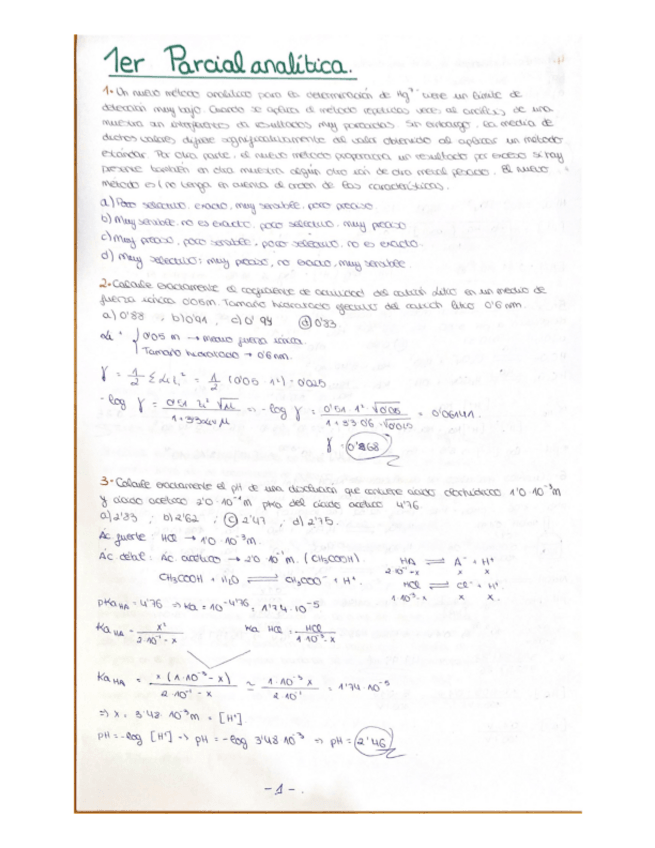 1er Parcial analítica.
1- Un nuevo método analítico para la determinación de Hg²⁺ tiene un límite de
detección muy bajo. Cuando se aplica el método repetidas veces al análisis de una
muestra sin interferentes da resultados muy parecidos. Sin embargo, la media de
dichos valores difiere significativamente del valor obtenido al aplicar un método
estándar. Por otra parte, el nuevo método proporciona un resultado por exceso si hay
presente también en otra muestra algún otro ion de otro metal pesado. El nuevo
método es (no tenga en cuenta el orden de las características).
a) Poco selectivo, exacto, muy sensible, poco preciso
b) Muy sensible, no es exacto, poco selectivo, muy preciso
c) Muy preciso, poco sensible, poco selectivo, no es exacto.
d) Muy selectivo; muy preciso, no exacto, muy sensible.
2- Calcule exactamente el coeficiente de actividad del catión litio en un medio de
fuerza iónica 0'05m. Tamaño hidratado del catión litio 0'6 nm.
a) 0'88 , b) 0'91 , c) 0'94 d) 0'83
0'05 m → medio fuerza iónica.
Tamaño hidratado → 0'6 nm.
γ = 1/2 Σ = 1/2 (0'05 · 1²) = 0'025
- log γ = ⇒ - log γ = = 0'06141.
γ = 0'868
3- Calcule exactamente el pH de una disolución que contiene ácido clorhídrico 1'0·10⁻³m
y ácido acético 2'0·10⁻¹m pKa del ácido acético 4'76
a) 2'83 ; b) 2'62 ; c) 2'47 ; d) 2'75.
Ác fuerte: HCl → 1'0·10⁻³m.
Ác débil: Ác. acético → 2'0·10⁻¹m. (CH₃COOH). HA ⇌ A⁻ + H⁺
2·10⁻¹-x x x
CH₃COOH + H₂O ⇌ CH₃COO⁻ + H⁺. HCl ⇌ Cl⁻ + H⁺
1·10⁻³-x x x.
pKa HA = 4'76 ⇒ Ka = 10⁻⁴'⁷⁶ = 1'74·10⁻⁵
Ka HA = x² / 2·10⁻¹ - x Ka HCl =
Ka HA = x (1·10⁻³ - x) / 2·10⁻¹ - x ≃ 1·10⁻³ x / 2·10⁻¹ = 1'74·10⁻⁵
⇒ x = 3'48·10⁻³m = [H⁺]
pH = -log [H⁺] ⇒ pH = -log 3'48·10⁻³ ⇒ pH = 2'46
- 1 - .